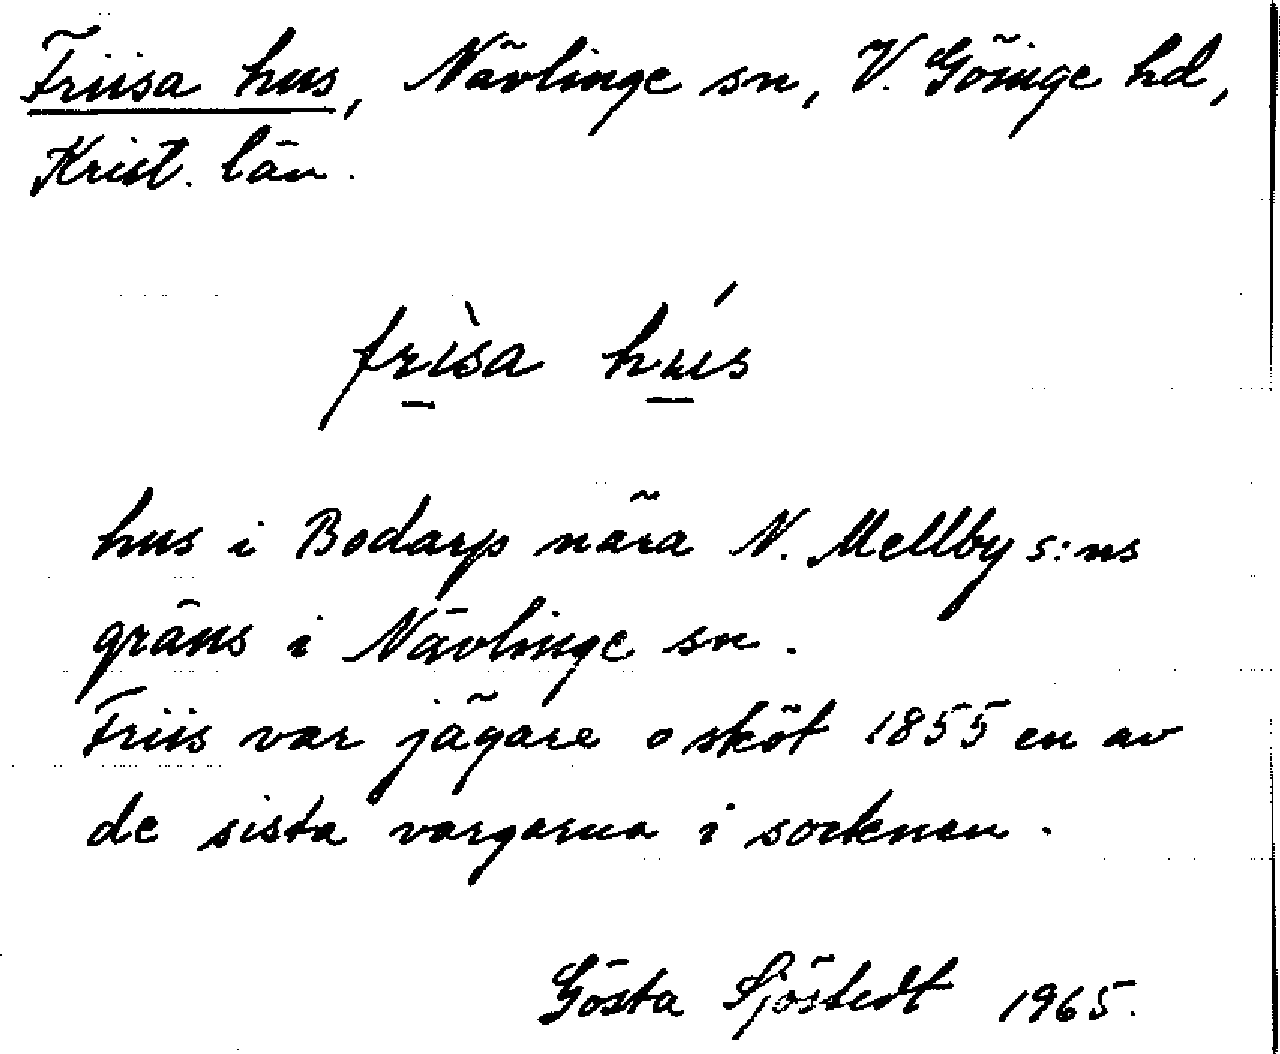 Friisa hus, Nävlinge sn, V. Göinge hd,
Krist. län.
frìsa hús
hus i Bodarp nära N. Mellby s:ns
gräns i Nävlinge sn.
Friis var jägare o sköt 1855 en av
de sista vargarna i socknen.
Gösta Sjöstedt 1965.